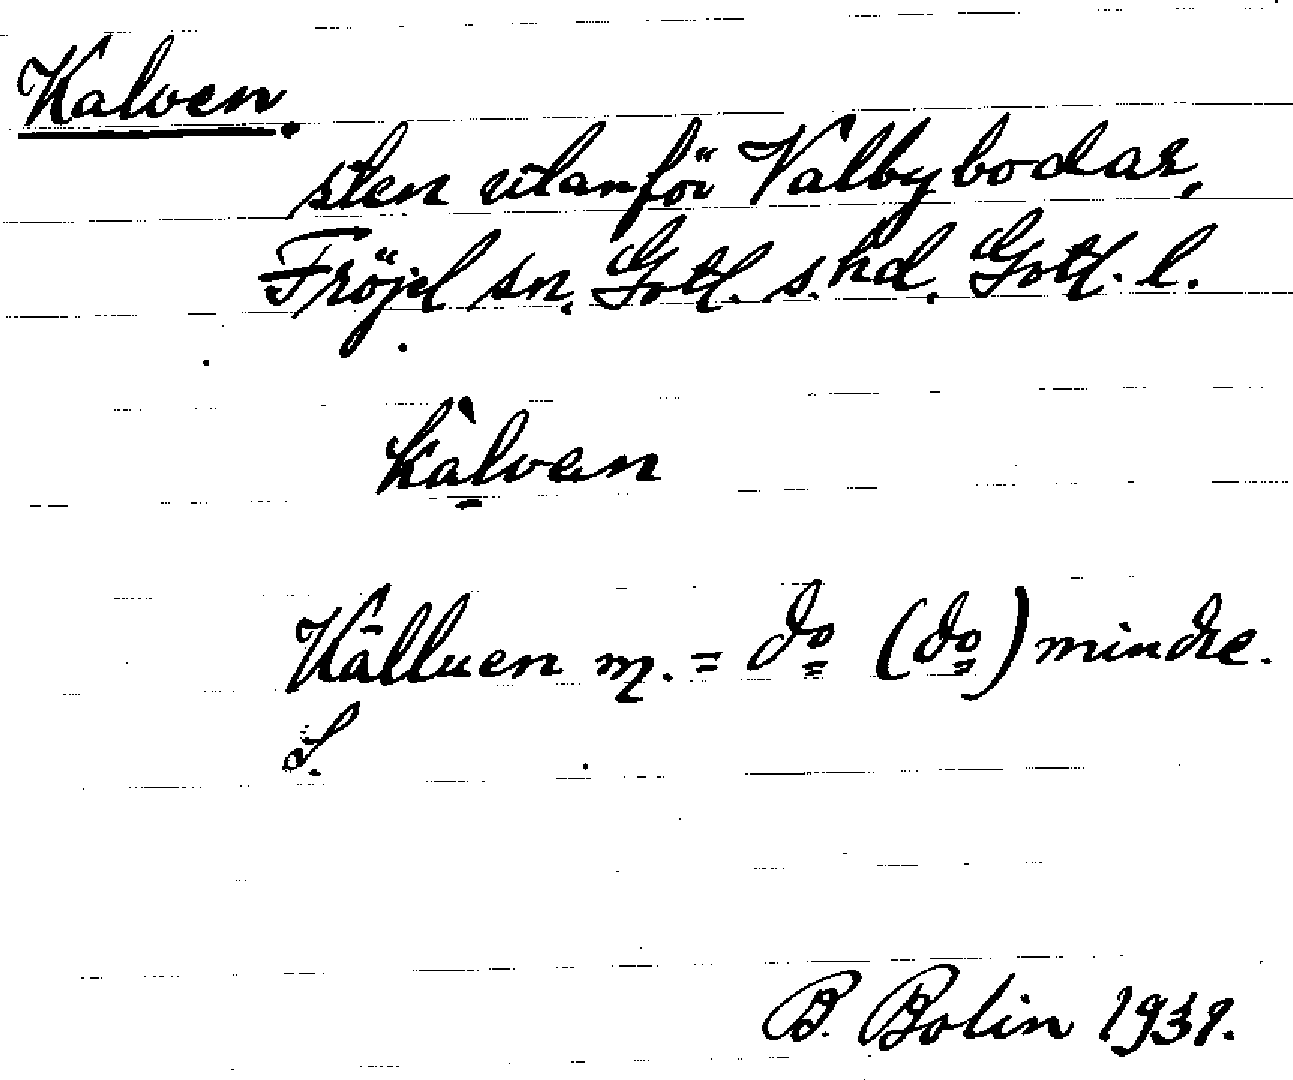 Kalven.
sten utanför Valbybodar,
Fröjel sn. Gotl. s. hd. Gotl. l.
kàlvan
Kālluen m. = do (do) mindre.
S.
B. Bolin 1931.